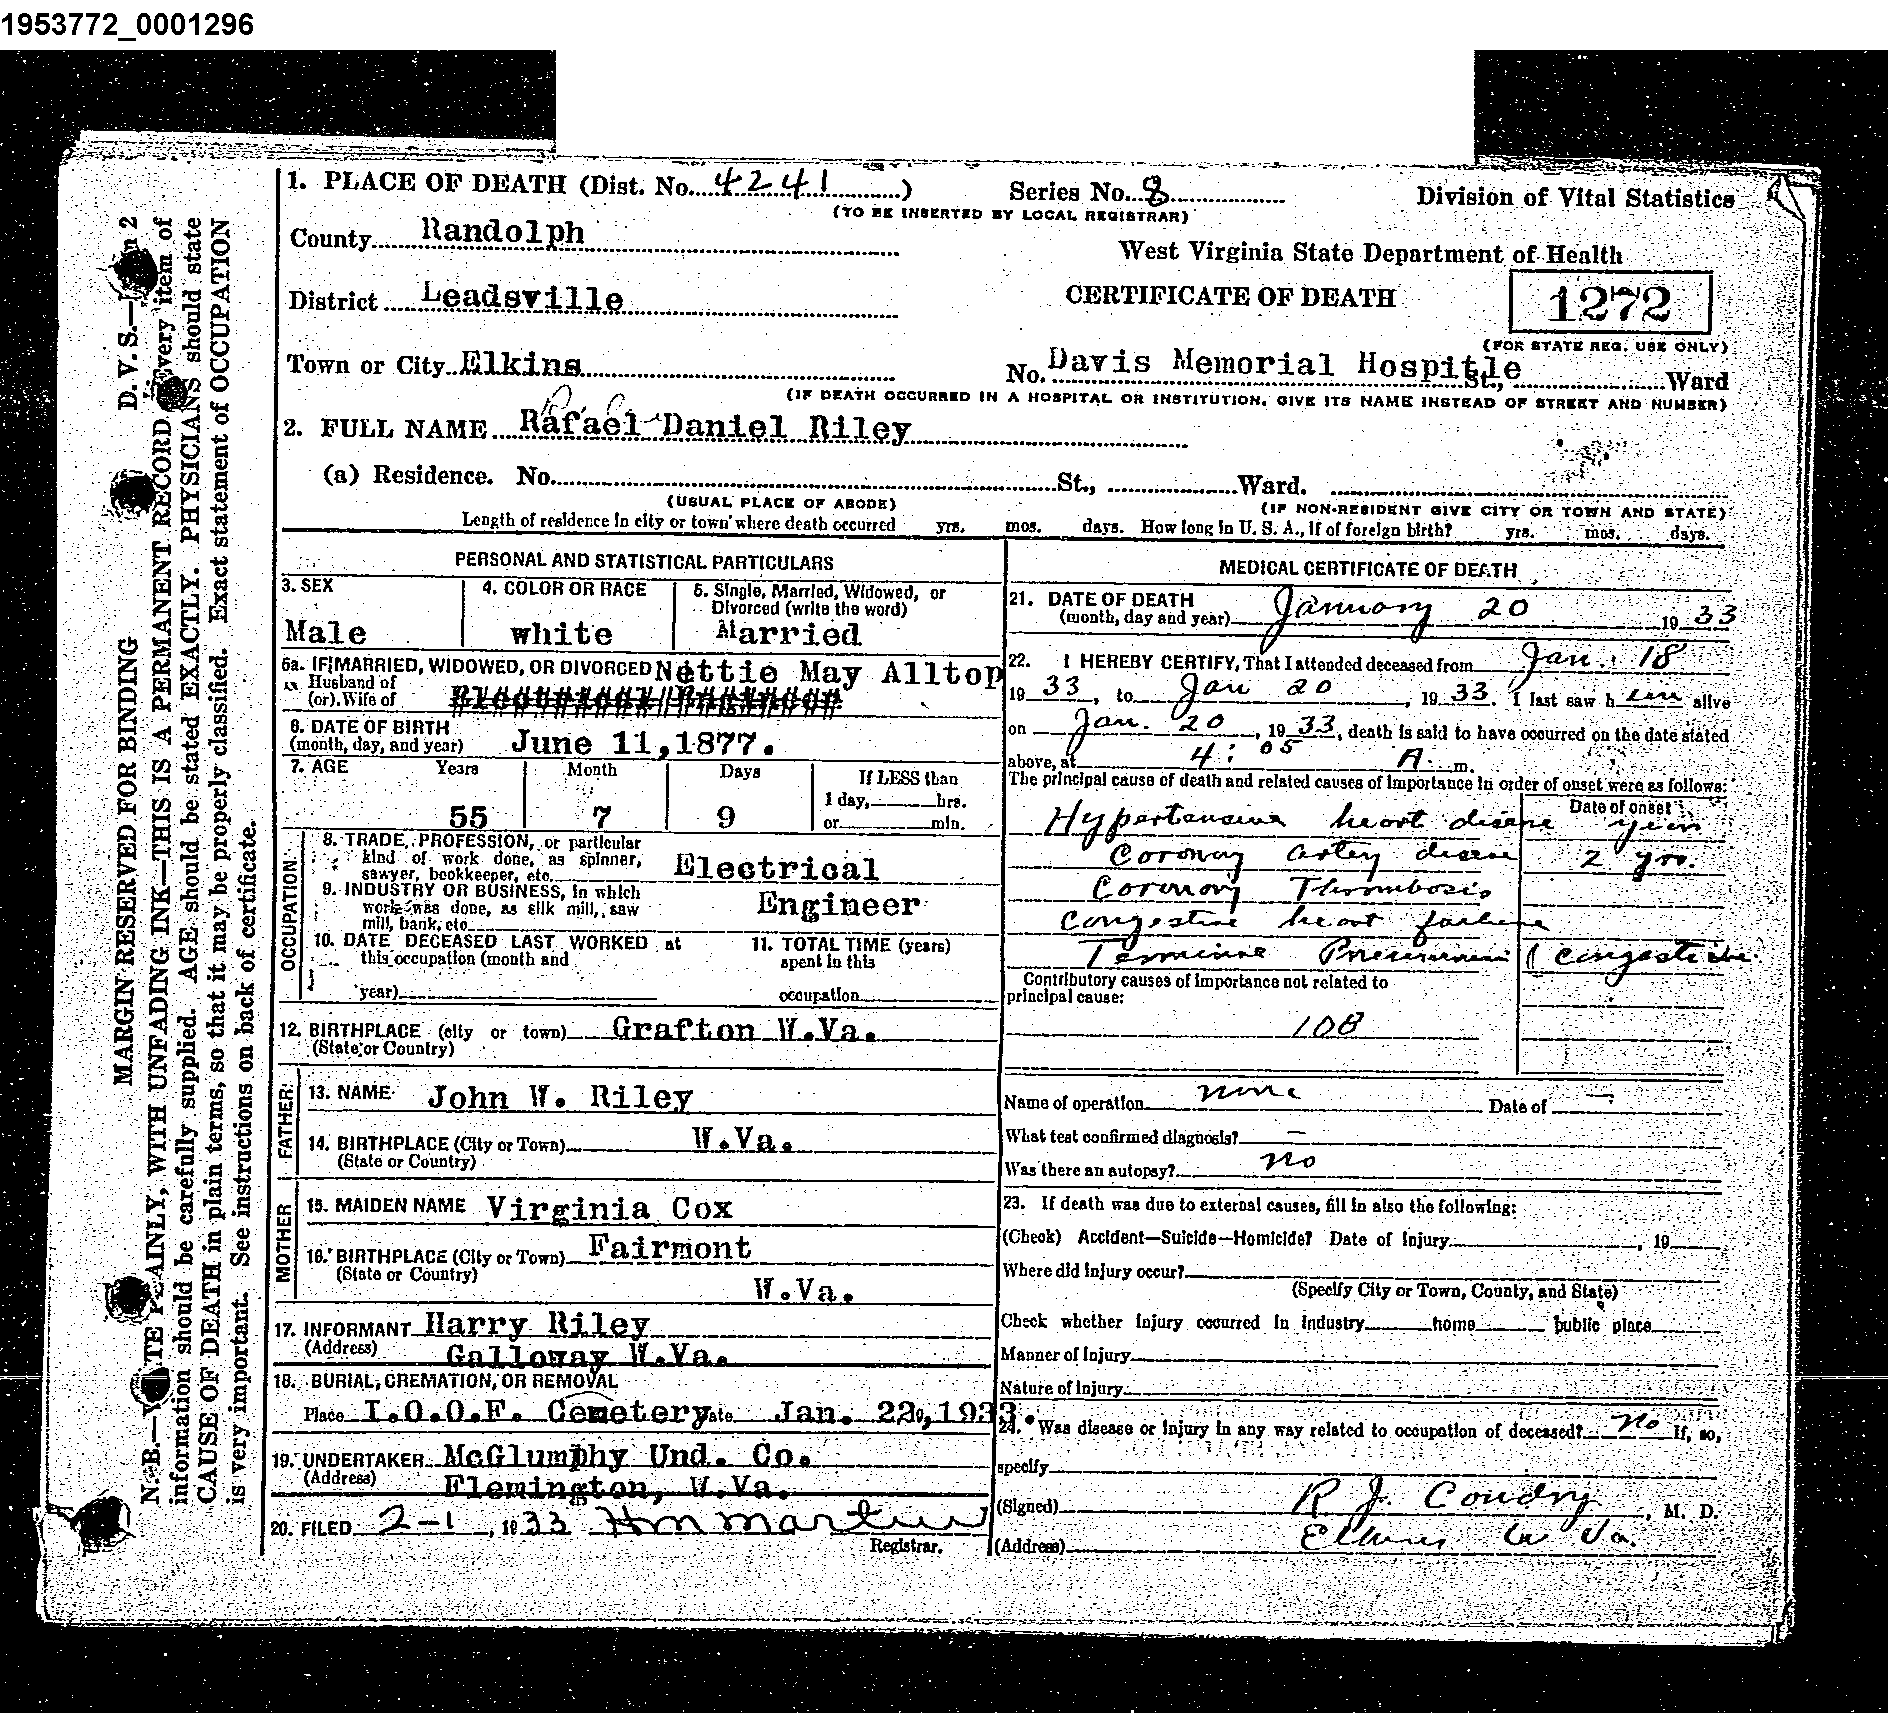 1953772_0001296
1. PLACE OF DEATH (Dist. No. 4241) Series No. 8 Division of Vital Statistics
(TO BE INSERTED BY LOCAL REGISTRAR)
County Randolph
West Virginia State Department of Health
District Leadsville CERTIFICATE OF DEATH 1272
(FOR STATE REG. USE ONLY)
Town or City Elkins No. Davis Memorial Hospitle St., Ward
(IF DEATH OCCURRED IN A HOSPITAL OR INSTITUTION, GIVE ITS NAME INSTEAD OF STREET AND NUMBER)
2. FULL NAME Rafael Daniel Riley
(a) Residence. No. St., Ward.
(USUAL PLACE OF ABODE) (IF NON-RESIDENT GIVE CITY OR TOWN AND STATE)
Length of residence in city or town where death occurred yrs. mos. days. How long in U. S. A., if of foreign birth? yrs. mos. days.
PERSONAL AND STATISTICAL PARTICULARS
3. SEX 4. COLOR OR RACE 5. Single, Married, Widowed, or
Divorced (write the word)
Male white Married
5a. IF MARRIED, WIDOWED, OR DIVORCED Nettie May Alltop
Husband of
(or) Wife of
6. DATE OF BIRTH
(month, day, and year) June 11,1877.
7. AGE Years Month Days If LESS than
1 day, hrs.
55 7 9 or min.
OCCUPATION
8. TRADE, PROFESSION, or particular
kind of work done, as spinner,
sawyer, bookkeeper, etc. Electrical
9. INDUSTRY OR BUSINESS, in which
work was done, as silk mill, saw
mill, bank, etc. Engineer
10. DATE DECEASED LAST WORKED at 11. TOTAL TIME (years)
this occupation (month and spent in this
year) occupation
12. BIRTHPLACE (city or town) Grafton W.Va.
(State or Country)
FATHER
13. NAME John W. Riley
14. BIRTHPLACE (City or Town) W.Va.
(State or Country)
MOTHER
15. MAIDEN NAME Virginia Cox
16. BIRTHPLACE (City or Town) Fairmont
(State or Country)
W.Va.
17. INFORMANT Harry Riley
(Address) Galloway W.Va.
18. BURIAL, CREMATION, OR REMOVAL
Place I.O.O.F. Cemetery Date Jan. 22, 1933.
19. UNDERTAKER McGlumphy Und. Co.
(Address) Flemington, W.Va.
20. FILED 2-1, 1933 HM Martin
Registrar.
MEDICAL CERTIFICATE OF DEATH
21. DATE OF DEATH
(month, day and year) January 20 1933
22. I HEREBY CERTIFY, That I attended deceased from Jan. 18
1933, to Jan 20, 1933. I last saw him alive
on Jan. 20, 1933, death is said to have occurred on the date stated
above, at 4:05 A. m.
The principal cause of death and related causes of importance in order of onset were as follows:
Date of onset
Hypertensive heart disease years
Coronary artery disease 2 yrs.
Coronary Thrombosis
Congestive heart failure
Terminal Pneumonia (congestive.
Contributory causes of importance not related to
principal cause:
108
Name of operation none Date of —
What test confirmed diagnosis? —
Was there an autopsy? no
23. If death was due to external causes, fill in also the following:
(Check) Accident—Suicide—Homicide? Date of injury , 19
Where did injury occur?
(Specify City or Town, County, and State)
Check whether injury occurred in industry home public place
Manner of injury
Nature of injury
24. Was disease or injury in any way related to occupation of deceased? no If, so,
specify
(Signed) R J. Condry, M. D.
(Address) Elkins W Va.
MARGIN RESERVED FOR BINDING D. V. S.
N. B.—WRITE PLAINLY, WITH UNFADING INK—THIS IS A PERMANENT RECORD Every item of
information should be carefully supplied. AGE should be stated EXACTLY. PHYSICIANS should state
CAUSE OF DEATH in plain terms, so that it may be properly classified. Exact statement of OCCUPATION
is very important. See instructions on back of certificate.